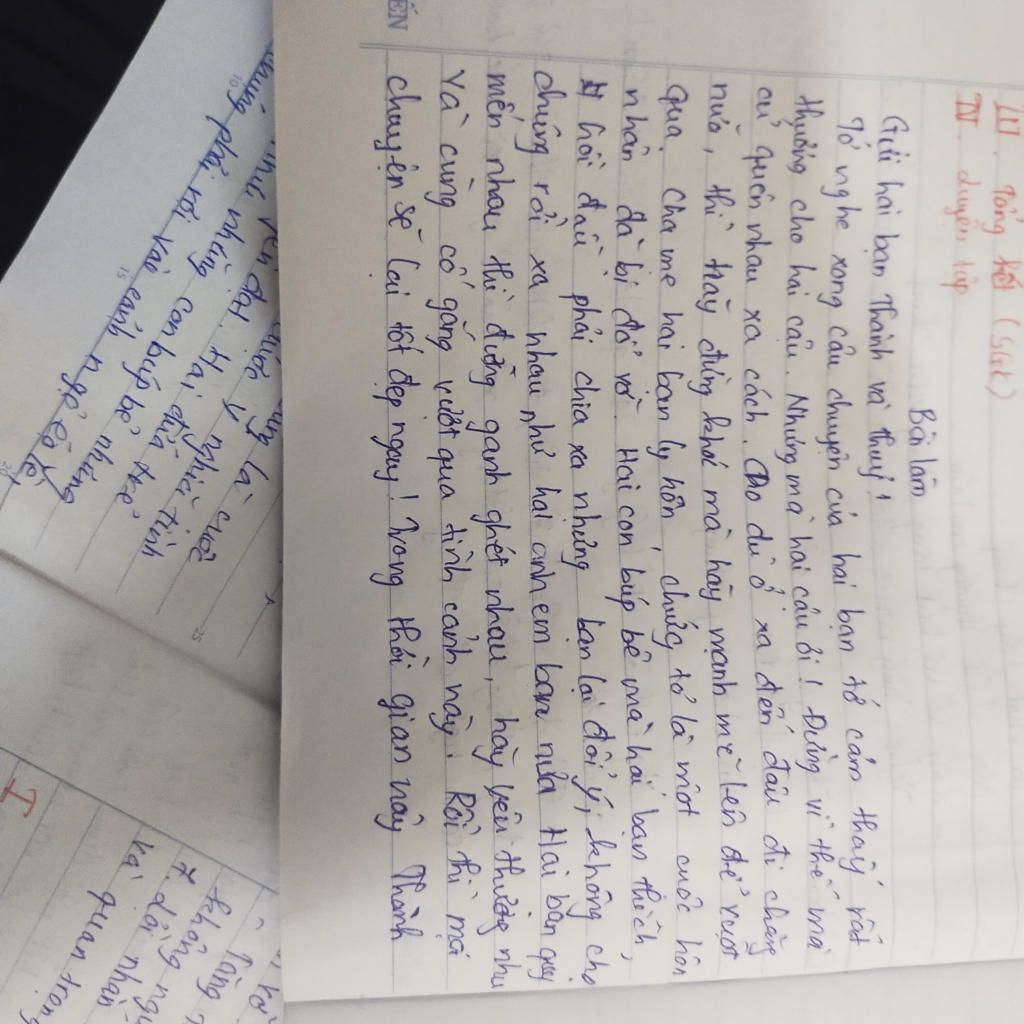 III. Tổng kết (SGK)
IV. Luyện tập
Bài làm
Gửi hai bạn Thành và Thuỷ!
Tớ nghe xong câu chuyện của hai bạn tớ cảm thấy rất
thương cho hai cậu. Nhưng mà hai cậu ơi! Đừng vì thế mà
cứ quên nhau xa cách. Cho dù ở xa đến đâu đi chăng
nữa, thì hãy đừng khóc mà hãy mạnh mẽ lên để vượt
qua. Cha mẹ hai bạn ly hôn, chứng tỏ là một cuộc hôn
nhân đã bị đổ vỡ. Hai con búp bê mà hai bạn thích,
hồi đầu phải chia xa nhưng bạn lại đổi ý, không cho
chúng rời xa nhau như hai anh em bạn nữa. Hai bạn quý
mến nhau thì đừng ganh ghét nhau, hãy yêu thương nhau
Và cùng cố gắng vượt qua tình cảnh này. Rồi thì mọi
chuyện sẽ lại tốt đẹp ngay! Trong thời gian này Thành
ẾN
là cuộc
ý nghĩa tình
Hai đứa trẻ
những con búp bê những
phải rơi vào cảnh ngộ éo le
I
không
dội nhận
và quan trọng